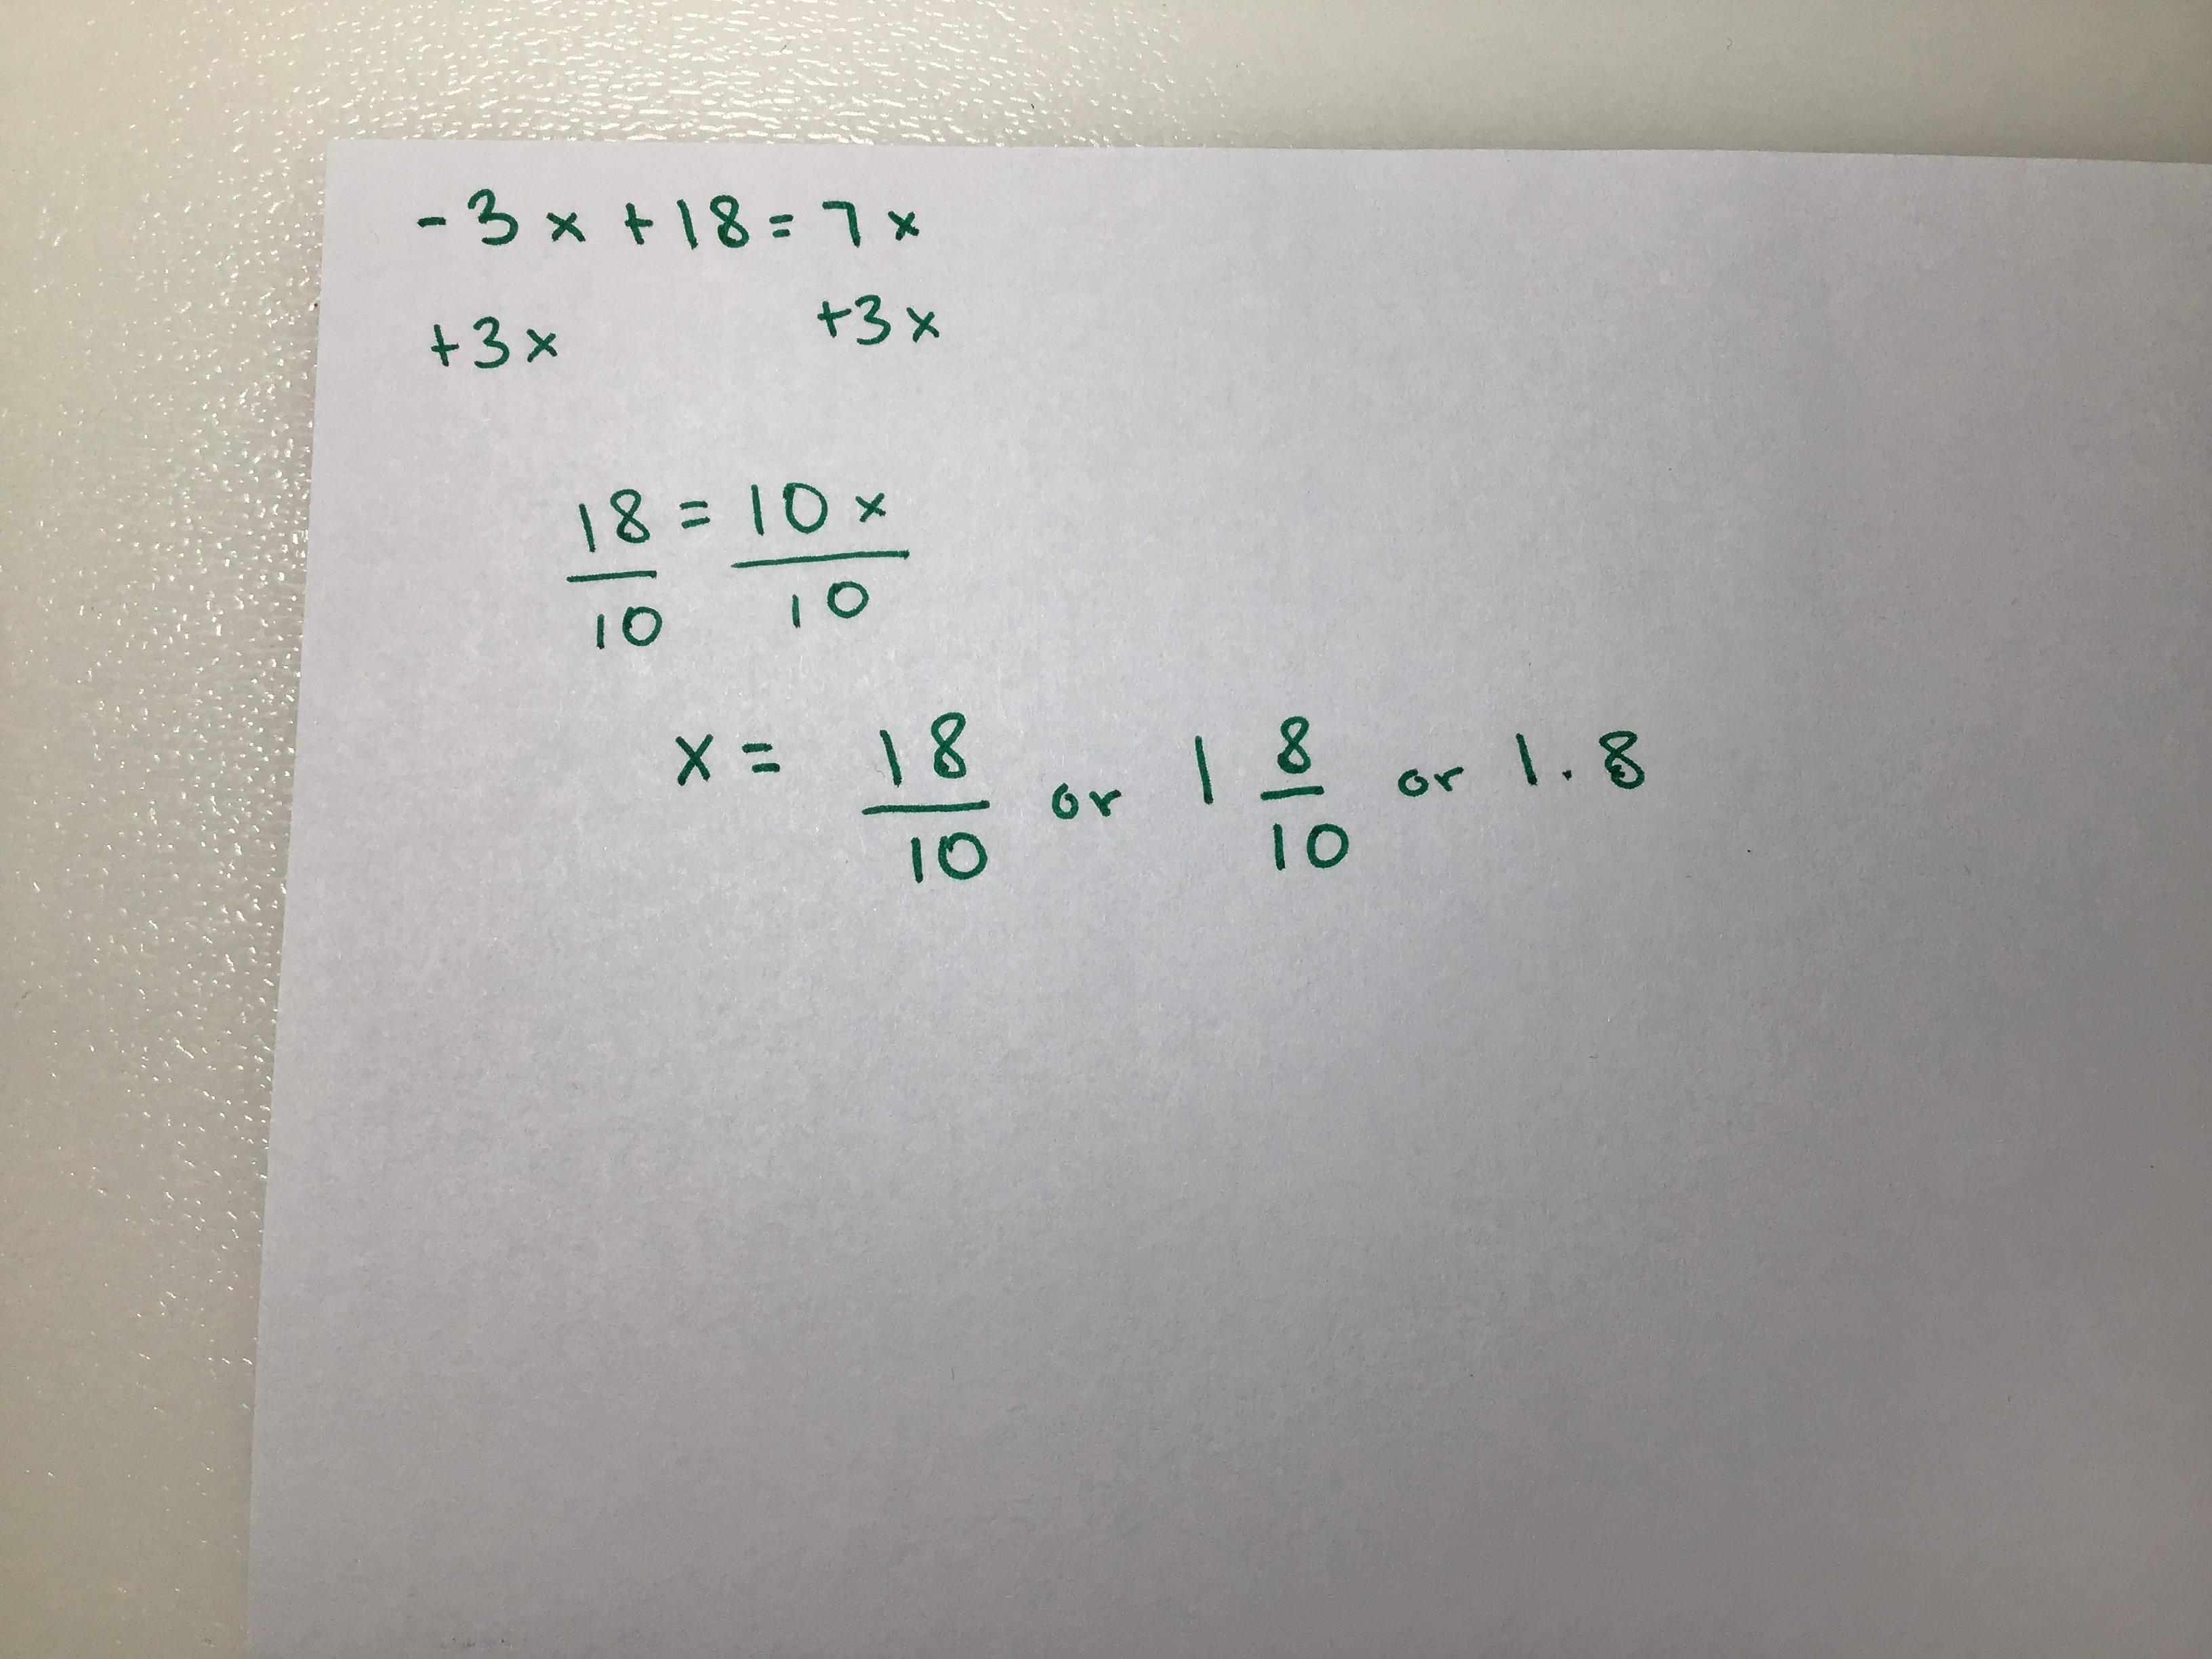 -3x + 18 = 7x
+3x +3x
18/10 = 10x/10
x = 18/10 or 1 8/10 or 1.8